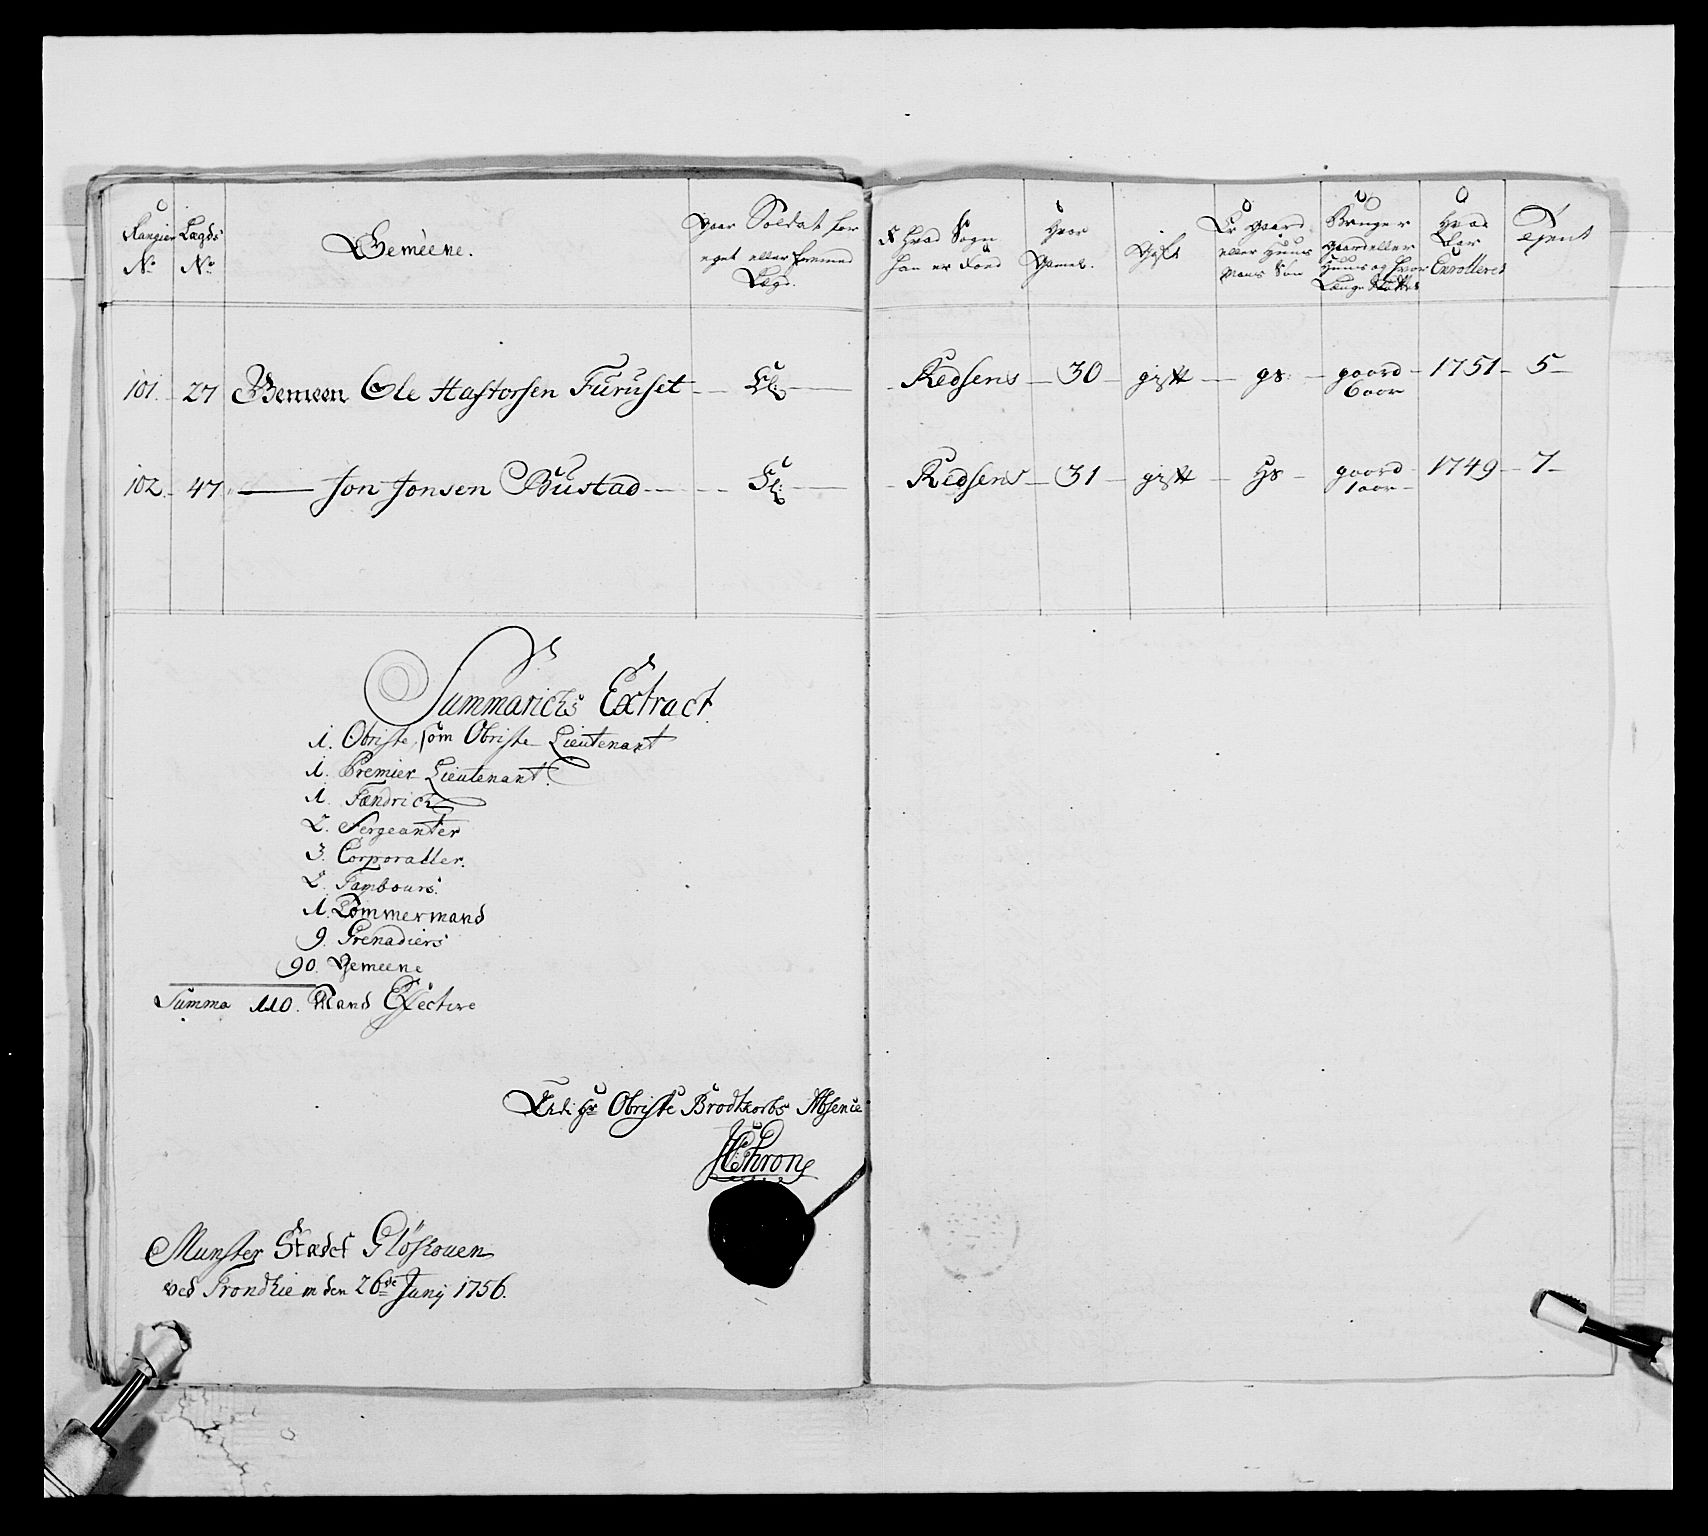 Rangier
No
Lægds
No
Gemeene.
Waar Soldat for
eget eller fremmed
Lægd.
I hvad Sogn
han er Född
Hvor
Gamel.
Gift
Er Gaard
eller Huus
Mans Sön
Bruger
Gaard eller
Huus og hvor
Længe
Hvad
Aar
Enrolleret
Tient
101. 27 Gemeen Ole Hastorsen Furuset El: Redsens 30 gift gs: gaard 6 aar 1751 5
102. 47 Jon Jonsen Bustad El: Redsens 31 gift Hs gaard 1 aar 1749 7
Summarichs Extract
1. Obriste som Obriste Lieutenant
1. Premier Lieutenant.
1. Fændrich
2. Sergeanter
3. Corporaller.
2. Tambours.
1. Tömmermand
9. Grenadiers
90. Gemeene
Summa 110. Mand Effective
Udi Hr Obriste Brodtkorbs Absence
Munster Stædet Glöskouen
ved Trondhiem den 26de Junij 1756.